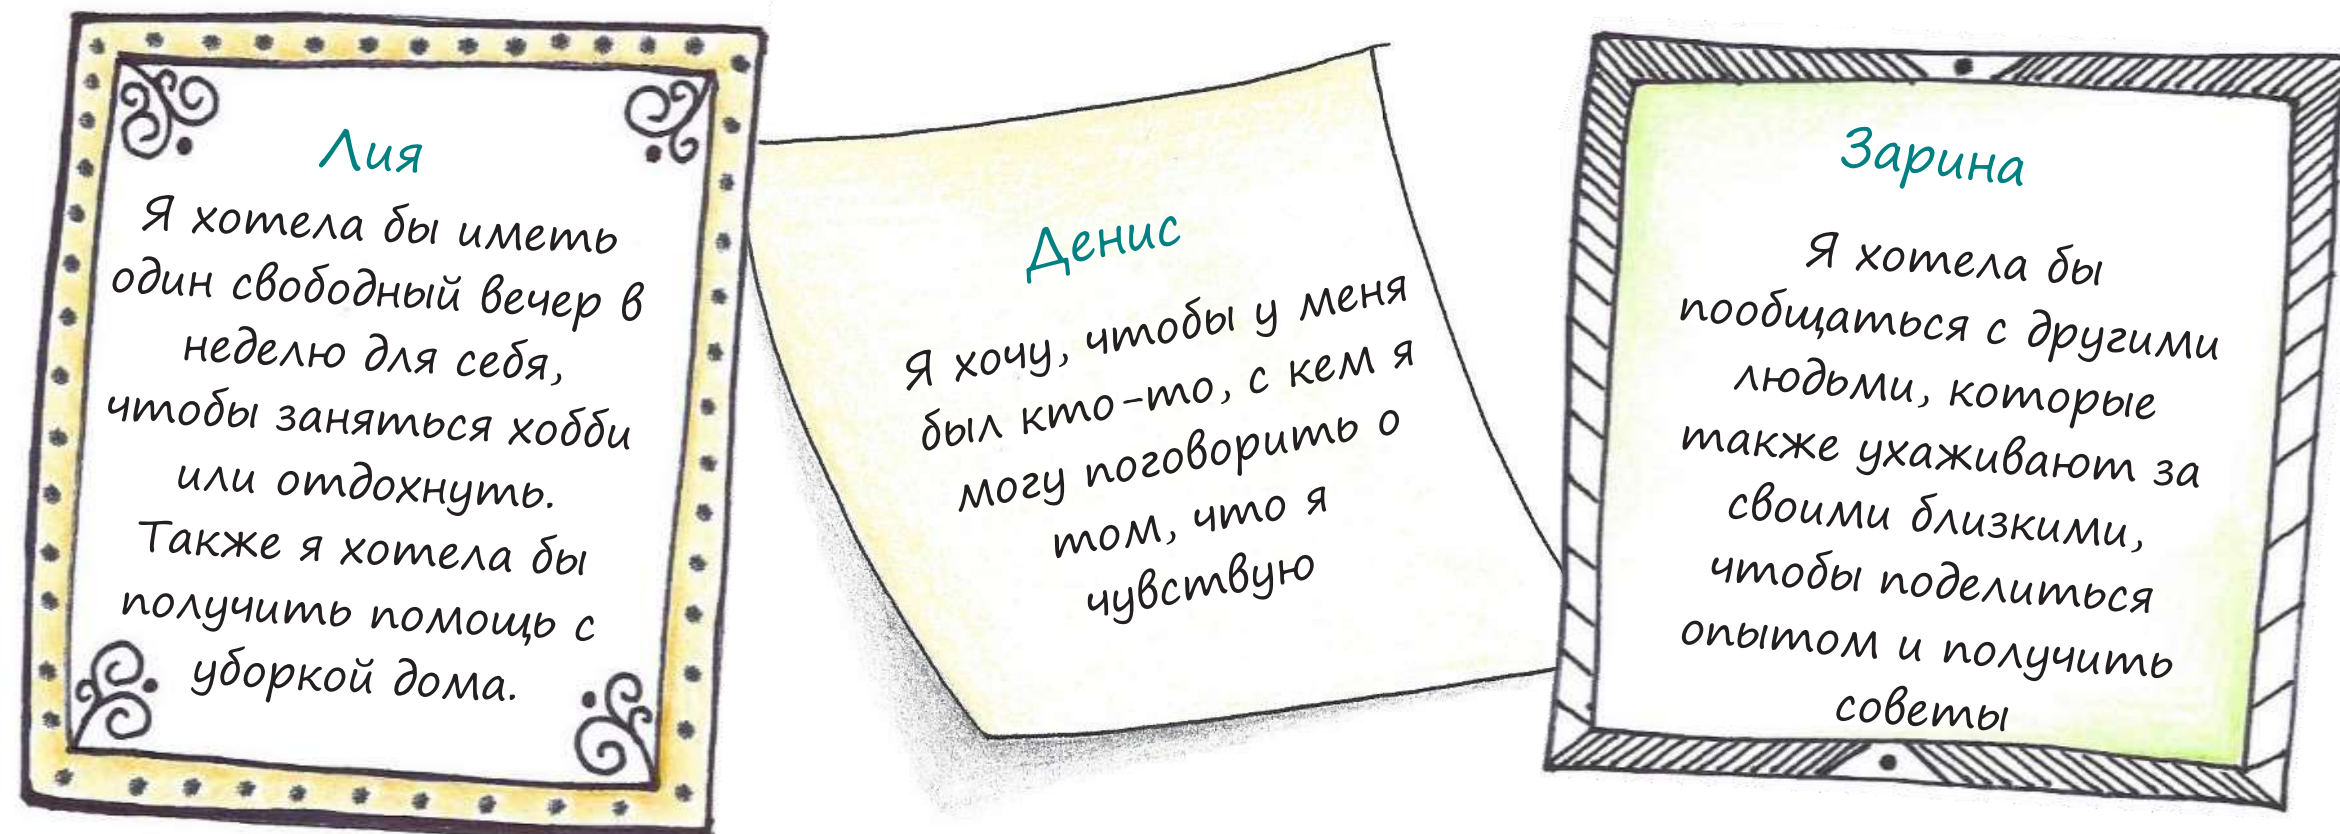 Лия
Я хотела бы иметь
один свободный вечер в
неделю для себя,
чтобы заняться хобби
или отдохнуть.
Также я хотела бы
получить помощь с
уборкой дома.
Денис
Я хочу, чтобы у меня
был кто-то, с кем я
могу поговорить о
том, что я
чувствую
Зарина
Я хотела бы
пообщаться с другими
людьми, которые
также ухаживают за
своими близкими,
чтобы поделиться
опытом и получить
советы